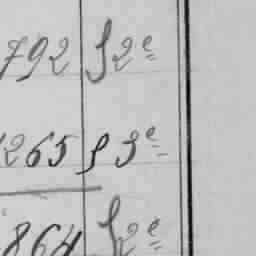 792 S 2e
1265 S 3e
864 S 2e